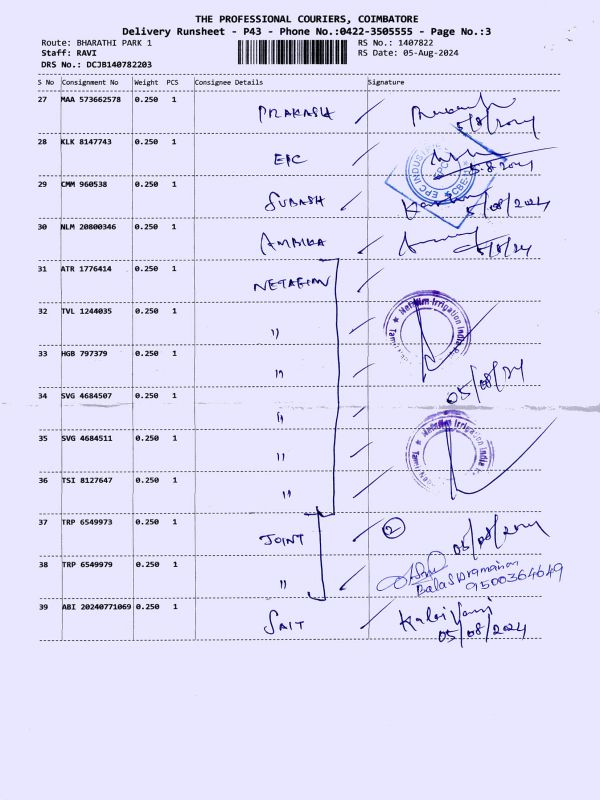 THE PROFESSIONAL COURIERS, COIMBATORE
Delivery Runsheet - P43 - Phone No.:0422-3505555 - Page No.:3
Route: BHARATHI PARK 1 RS No.: 1407822
Staff: RAVI RS Date: 05-Aug-2024
DRS No.: DCJB140782203
S No Consignment No Weight PCS Consignee Details Signature
27 MAA 573662578 0.250 1 PRAKASH
5/8/2024
28 KLK 8147743 0.250 1 EPC 5.8.2024
29 CMM 960538 0.250 1 SUBASH 5/08/2024
30 NLM 20800346 0.250 1 AMBIKA 5/8/24
31 ATR 1776414 0.250 1 NETAFIM
32 TVL 1244035 0.250 1 "
33 HGB 797379 0.250 1 "
05/08/24
34 SVG 4684507 0.250 1 "
35 SVG 4684511 0.250 1 "
36 TSI 8127647 0.250 1 "
37 TRP 6549973 0.250 1 JOINT 2
05/08/2024
38 TRP 6549979 0.250 1 "
Balasubramanian
9500364649
39 ABI 20240771069 0.250 1 SAIT
05/08/2024